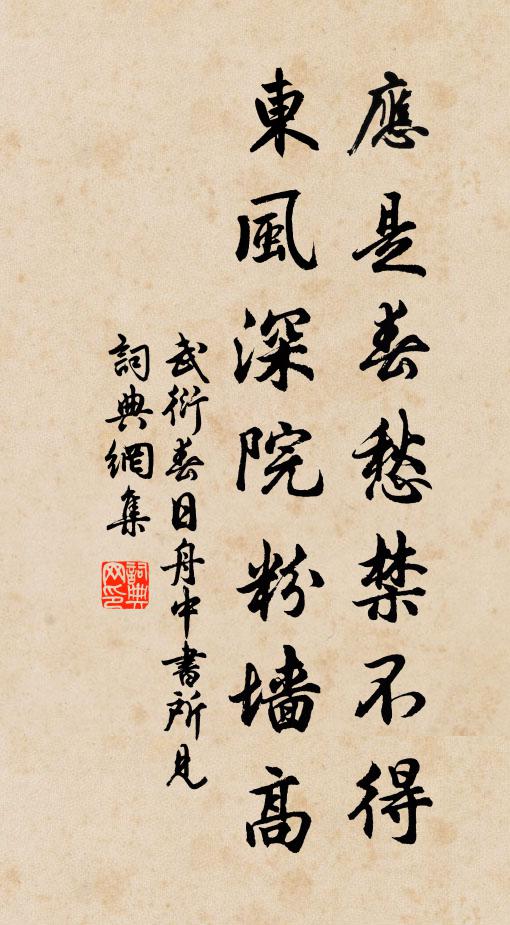 應是春愁禁不得
東風深院粉墻高
武衍春日舟中書所見
詞典網集
詞典网印